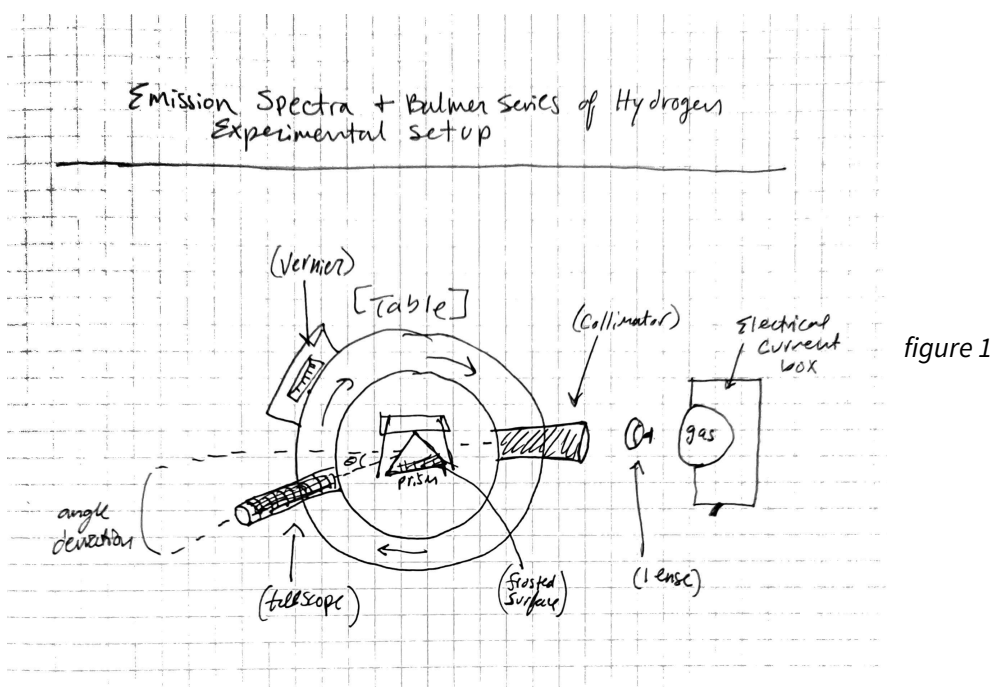 Emission Spectra + Balmer Series of Hydrogen
Experimental setup
(Vernier)
[Table]
(Collimator)
Electrical
current
box
figure 1
gas
θ
prism
angle
deviation
(telescope)
(frosted
surface)
(lense)